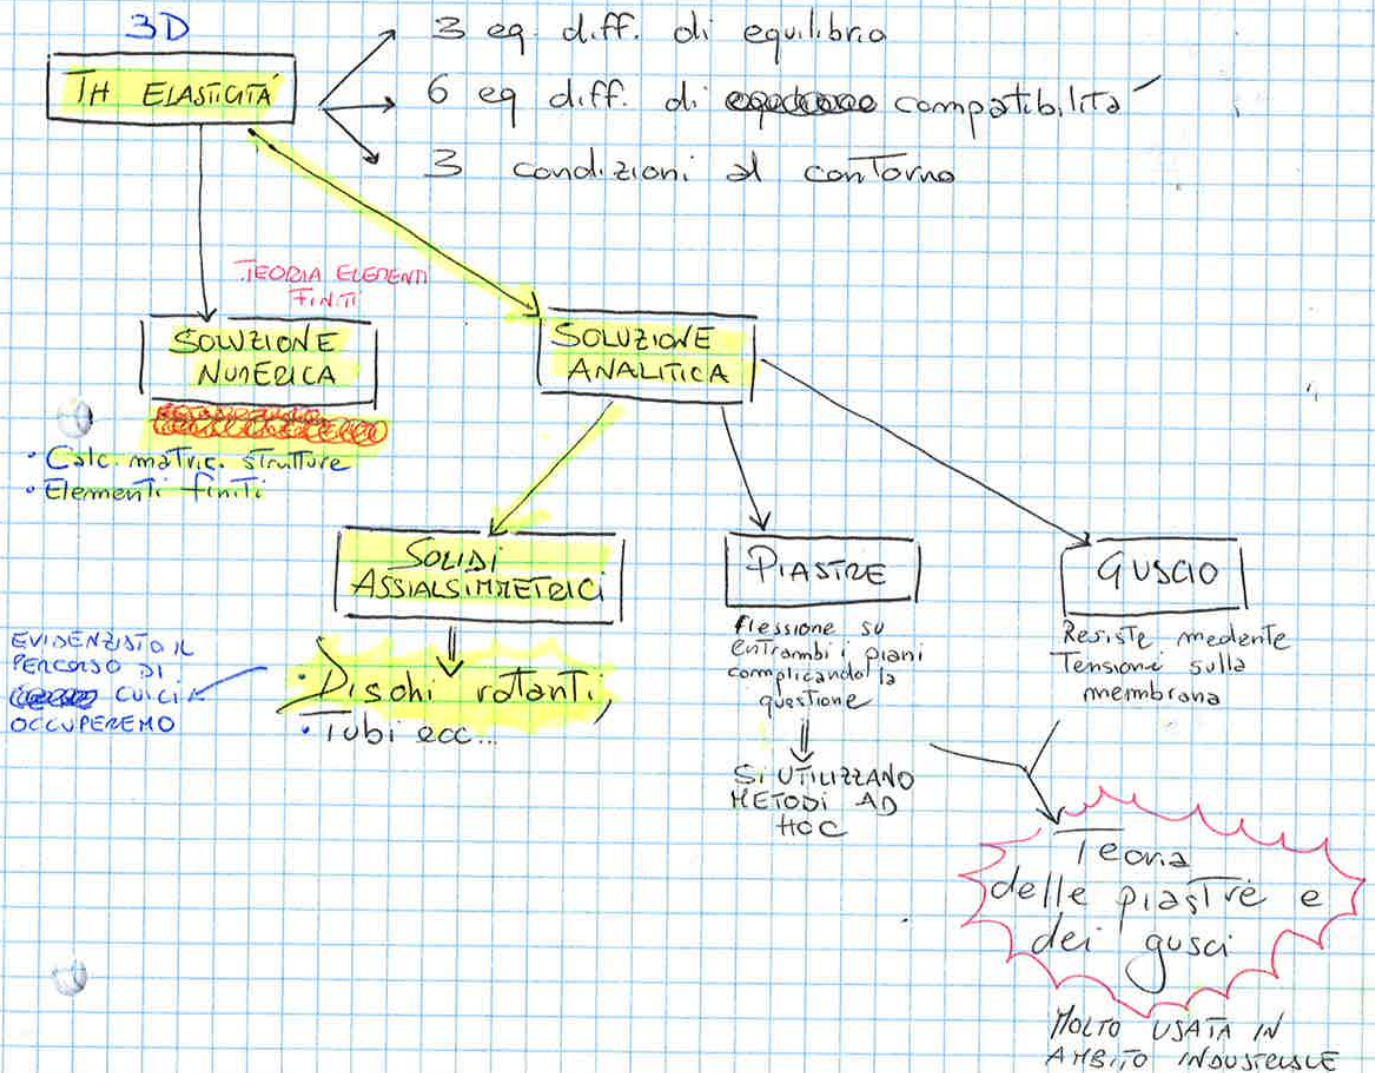 3D
TH ELASTICITÁ
3 eq. diff. di equilibrio
6 eq diff. di compatibilità
3 condizioni al contorno
TEORIA ELEMENTI
FINITI
SOLUZIONE
NUMERICA
• Calc. matric. strutture
• Elementi finiti
SOLUZIONE
ANALITICA
SOLIDI
ASSIALSIMMETRICI
• Dischi rotanti
• Tubi ecc...
EVIDENZIATO IL
PERCORSO DI
CUI CI
OCCUPEREMO
PIASTRE
flessione su
entrambi i piani
complicando la
questione
SI UTILIZZANO
METODI AD
HOC
GUSCIO
Resiste mediante
Tensioni sulla
membrana
Teoria
delle piastre e
dei gusci
MOLTO USATA IN
AMBITO INDUSTRIALE